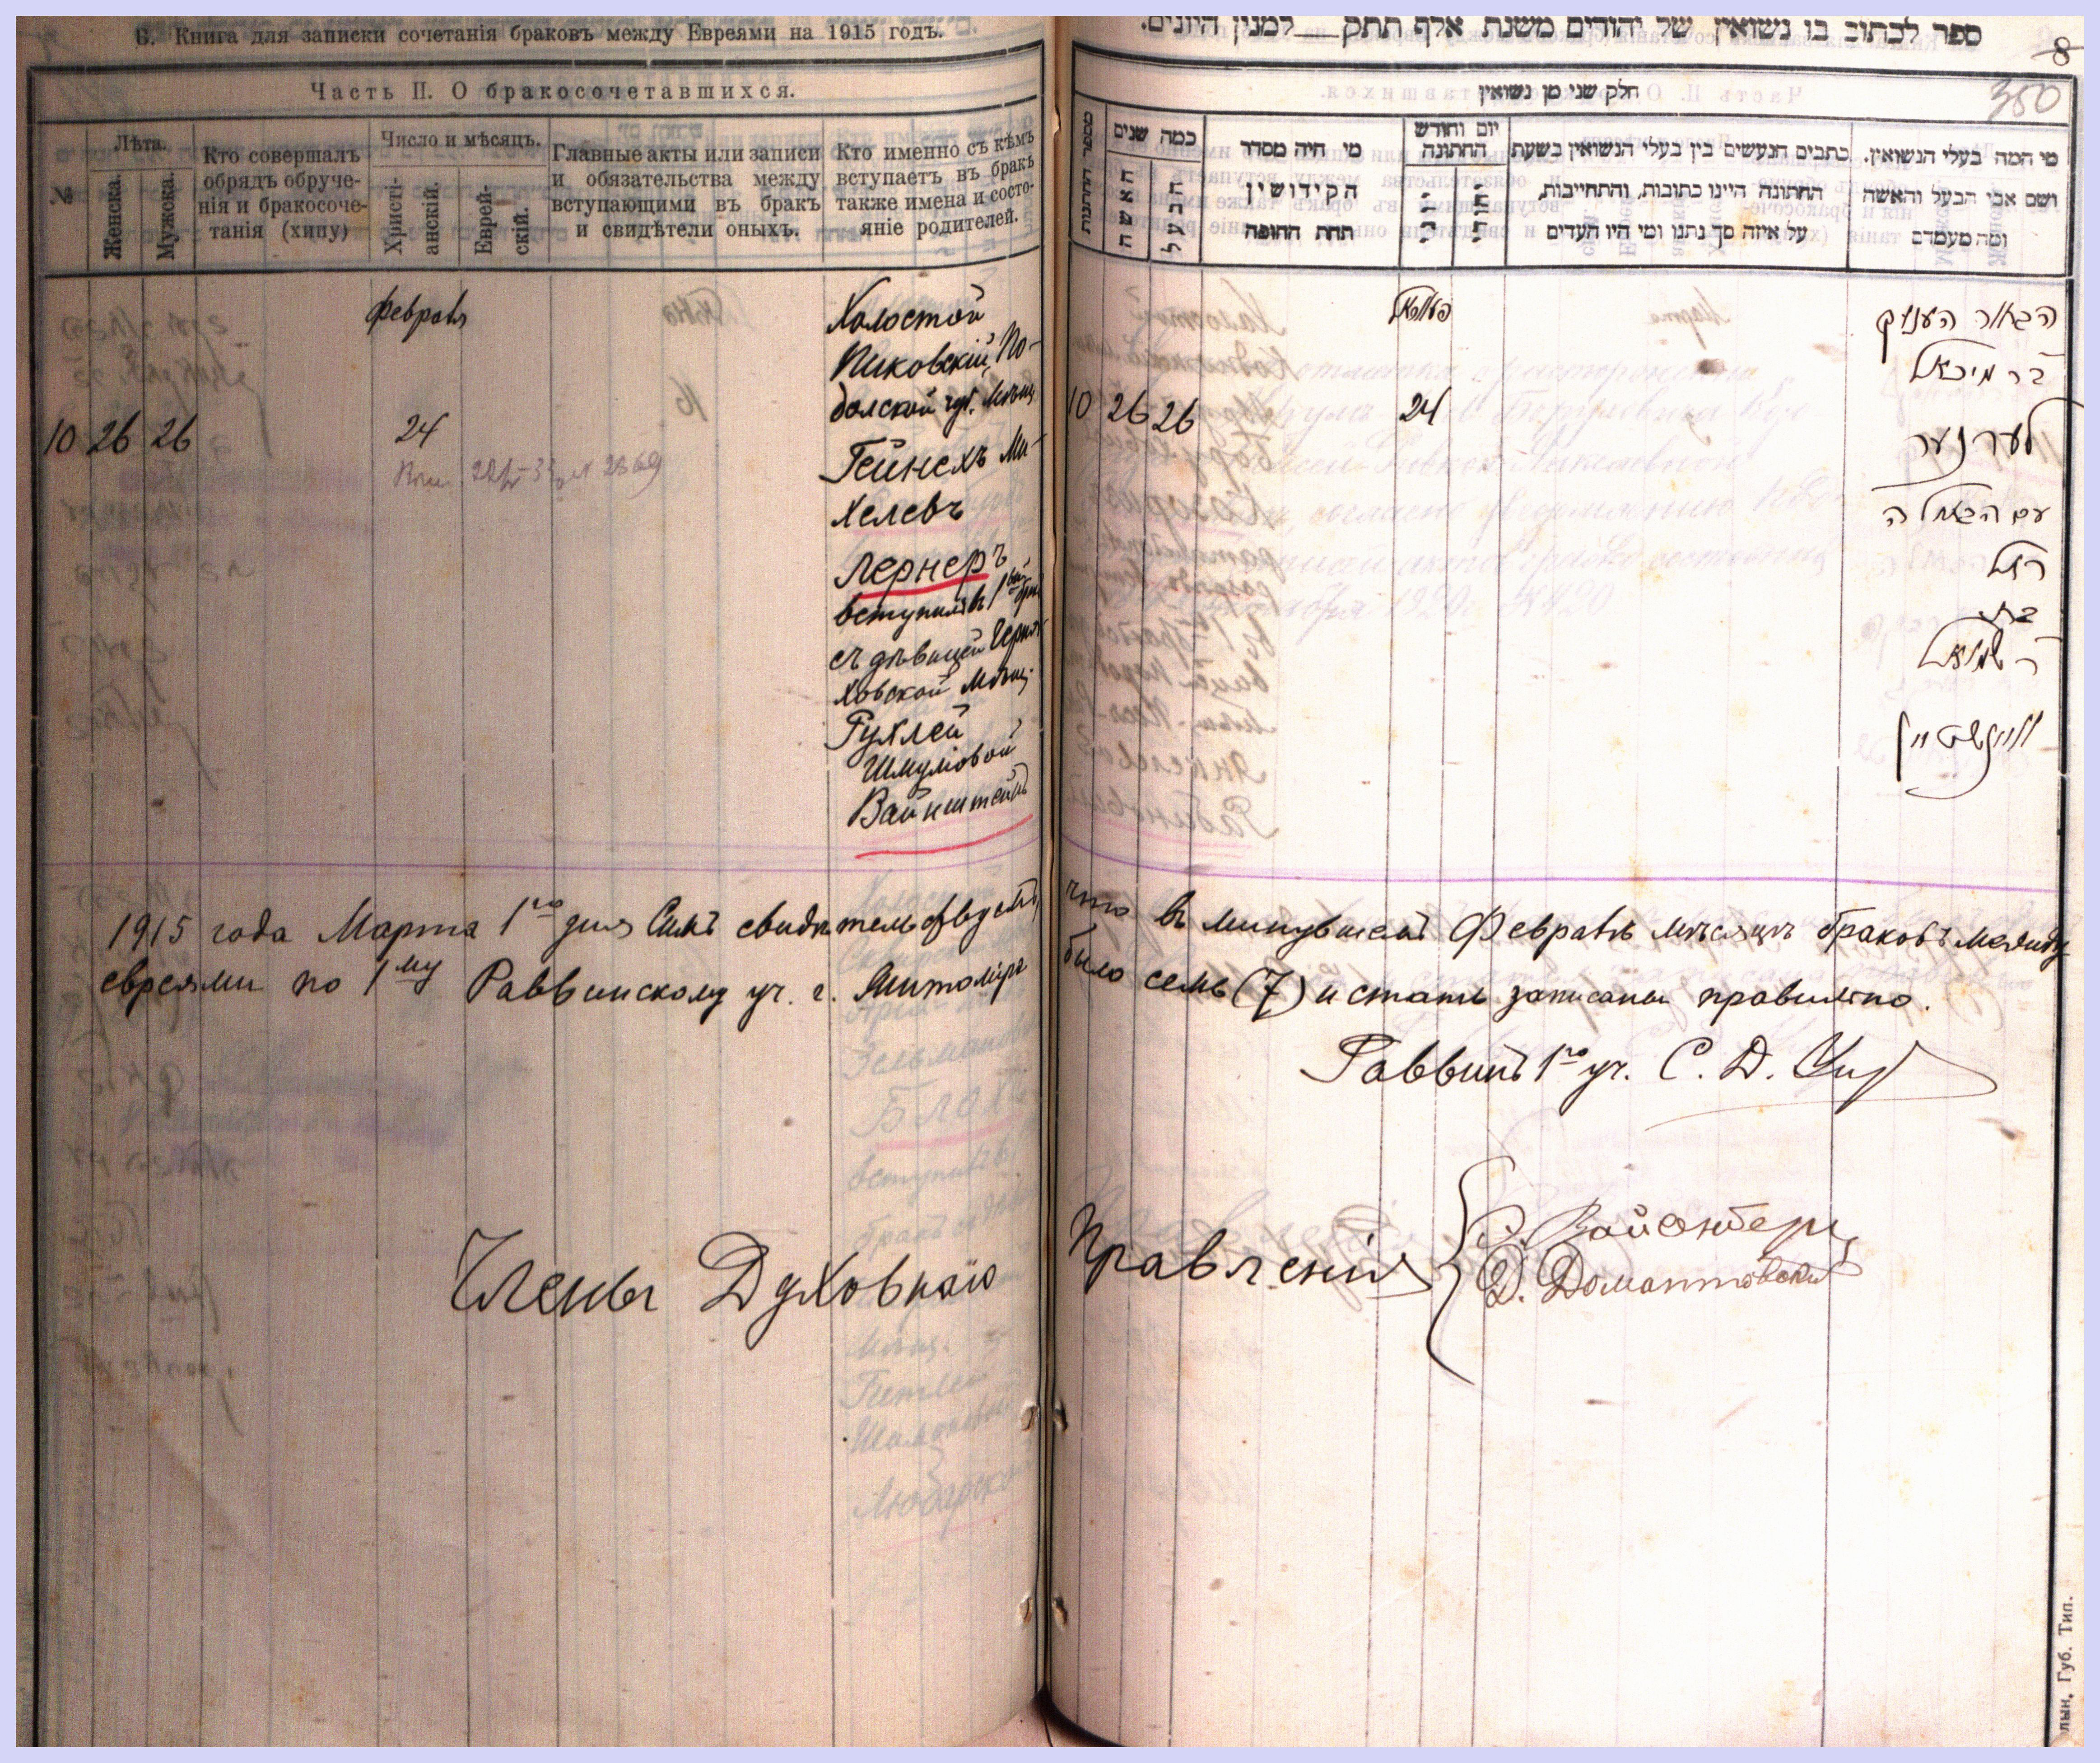 Б. Книга для записки сочетанія браковъ между Евреями на 1915 годъ.
Часть II. О бракосочетавшихся.
№
Лѣта.
Женска.
Мужска.
Кто совершалъ
обрядъ обруче-
нія и бракосоче-
танія (хипу)
Число и мѣсяцъ.
Христі-
анскій.
Еврей-
скій.
Главные акты или записи
и обязательства между
вступающими въ бракъ
и свидѣтели оныхъ.
Кто именно съ кѣмъ
вступаетъ въ бракъ
также имена и состо-
яніе родителей.
Февраль
10 26 26
24
Холостой
Пиковскій, По-
дольской губ. мѣщ.
Гейнехъ Ми-
хелевъ
Лернеръ
вступилъ въ 1
съ дѣвицей Черня-
ховской мѣщ.
Рухлей
Шмулювой
Вайнштейнъ
1915 года Марта 1го дня Симъ свидѣтельствуетъ,
евреями по 1му Раввинскому уч. г. Житоміра
Члены Духовнаго
ספר לכתוב בו נשואין של יהודים משנת אלף תתק למנין היונים.
8
350
חלק שני מן נשואין
מספר החתונות
כמה שנים
האשה
הבעל
מי היה מסדר
הקידושין
תחת החופה
יום וחודש
החתונה
כתבים הנעשים בין בעלי הנשואין בשעת
החתונה היינו כתובות, והתחייבות,
על איזה סך נתנו ומי היו העדים
מי המה בעלי הנשואין.
ושם אבי הבעל והאשה
ומה מעמדם
10 26 26
24
הבחור העניך
בר מיכאל
לערנער
עם הבתולה
רחל
בת
ר שמואל
וויינשטיין
что въ минувшемъ Февралѣ мѣсяцѣ браковъ между
было семь (7) и статьи записаны правильно.
Раввинъ 1го уч. С. Д.
Правленія
Д. Домантовскій
Губ. Тип.